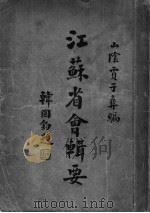 山陰賈子彝編
江蘇省會輯要
韓國鈞